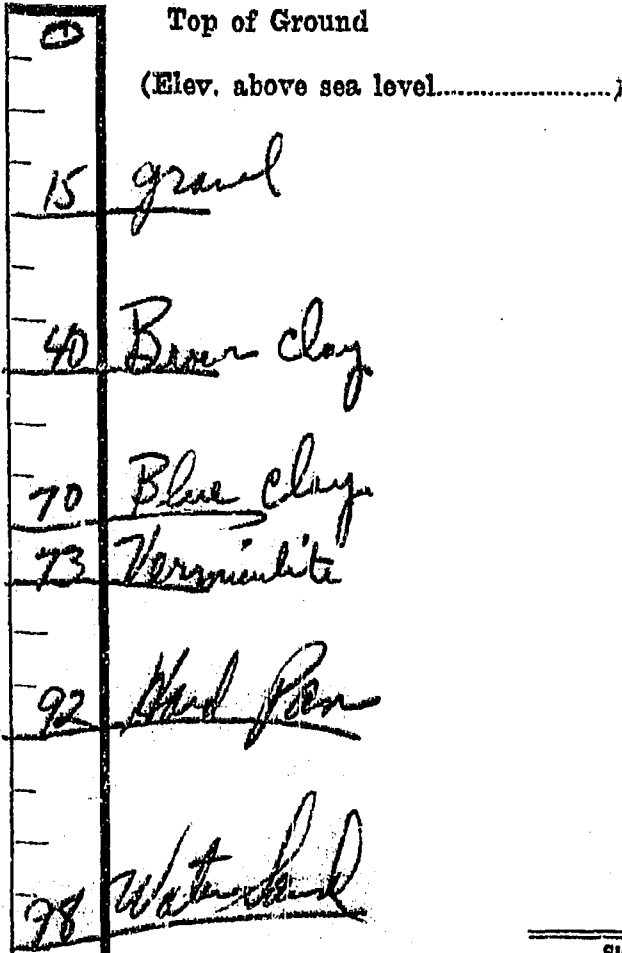 0 Top of Ground
(Elev. above sea level......................)
15 gravel
40 Brown clay
70 Blue clay
73 Vermiculite
92 Hard Pan
98 Water Sand